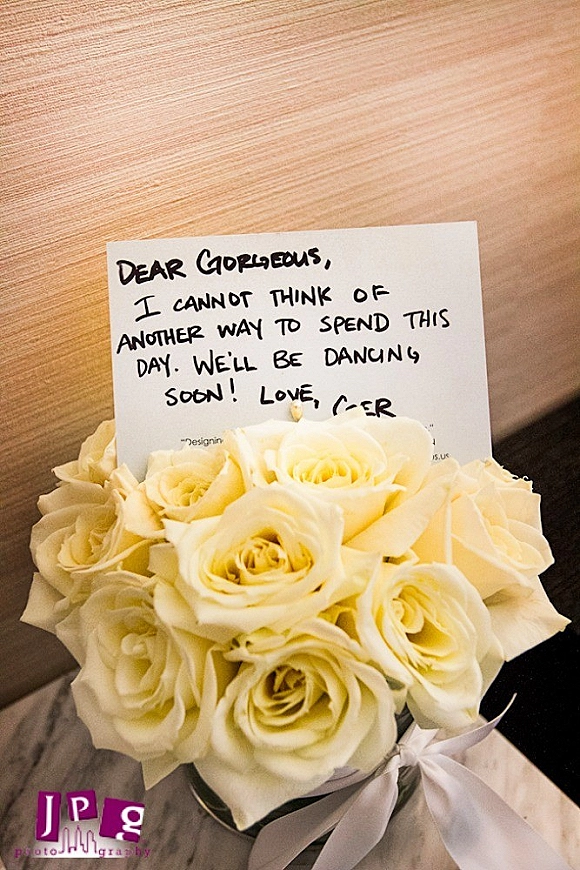 DEAR GORGEOUS,
I CANNOT THINK OF
ANOTHER WAY TO SPEND THIS
DAY. WE'LL BE DANCING
SOON! LOVE, GER
"Designing
us.us
JPg
photography